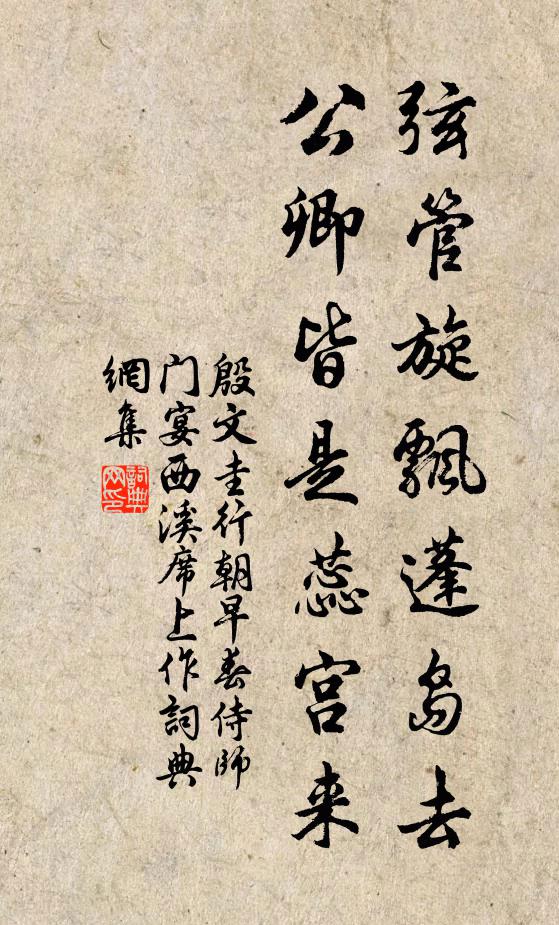 弦管旋飘蓬岛去
公卿皆是蕊宫来
殷文圭行朝早春侍师
门宴西溪席上作詞典
網集
詞典
网印